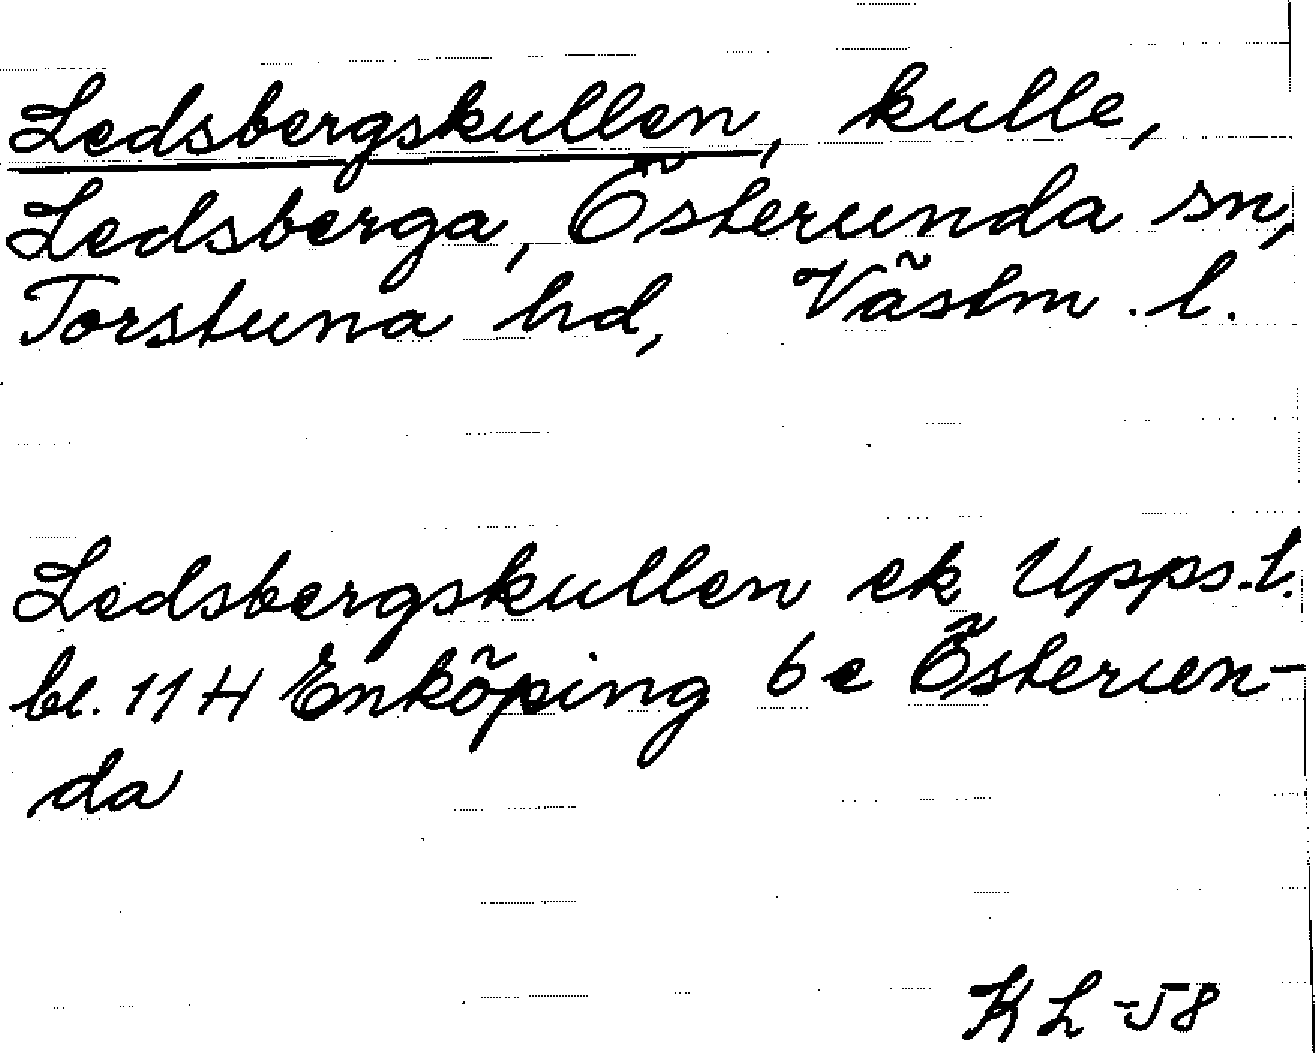 Ledsbergskullen, kulle,
Ledsberga, Österunda sn,
Torstuna hd, Västm. l.
Ledsbergskullen ek Upps. l.
bl. 11 H Enköping 6 e Österun-
da
KL -58